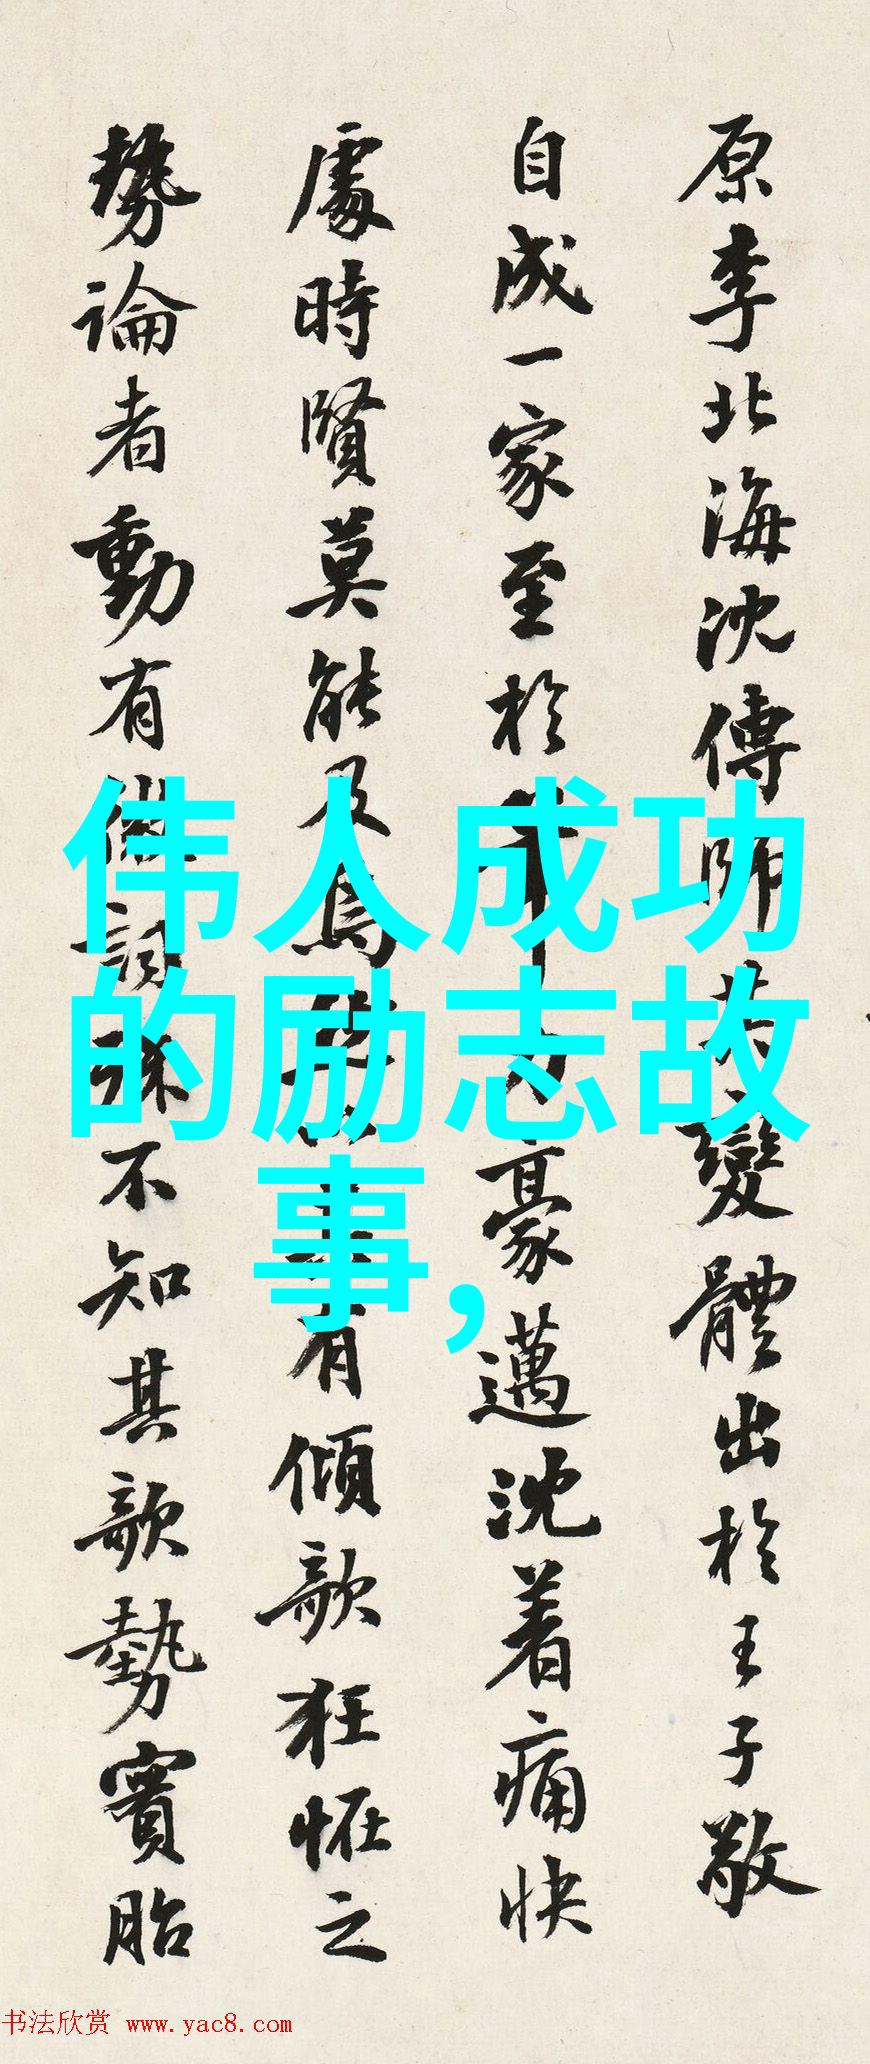 原李北海沈傳師變體出於王子敬
自成一家至於筆力豪邁沈着痛快
處時賢莫能及焉有傾欹狂怪之
勢論者動有微詞殊不知其欹勢實胎
伟人成功
的励志故
事,
书法欣赏 www.yac8.com